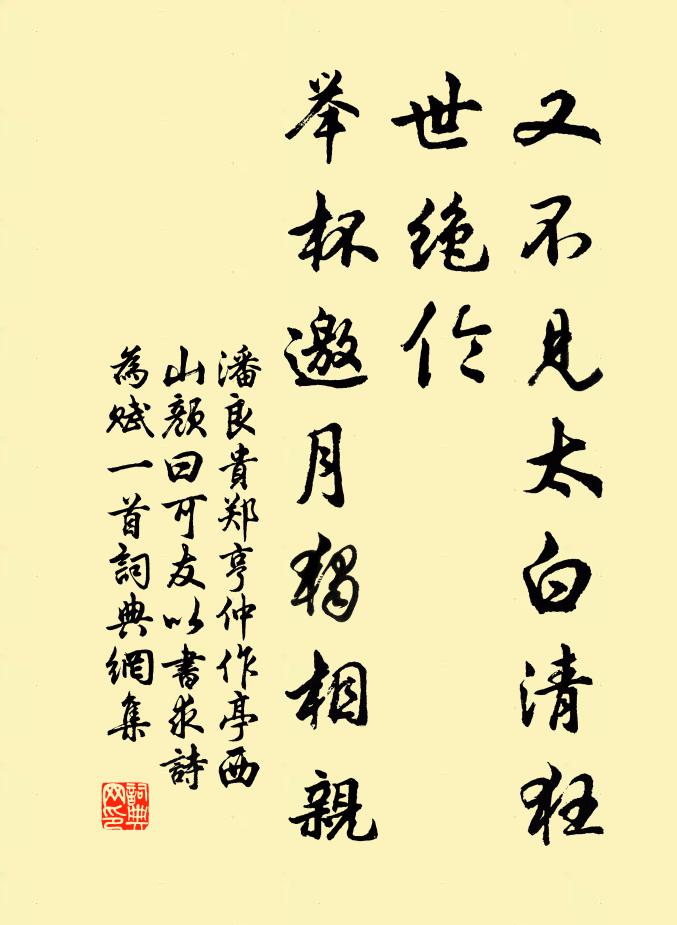 又不見太白清狂
世絶伦
举杯邀月獨相親
潘良貴郑亨仲作亭西
山顏曰可友以書求詩
為赋一首詞典網集
詞典
网印